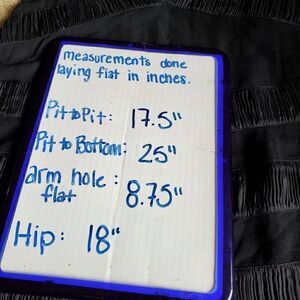 measurements done
laying flat in inches.
Pit to Pit: 17.5"
Pit to Bottom: 25"
arm hole: 8.75"
flat
Hip: 18"